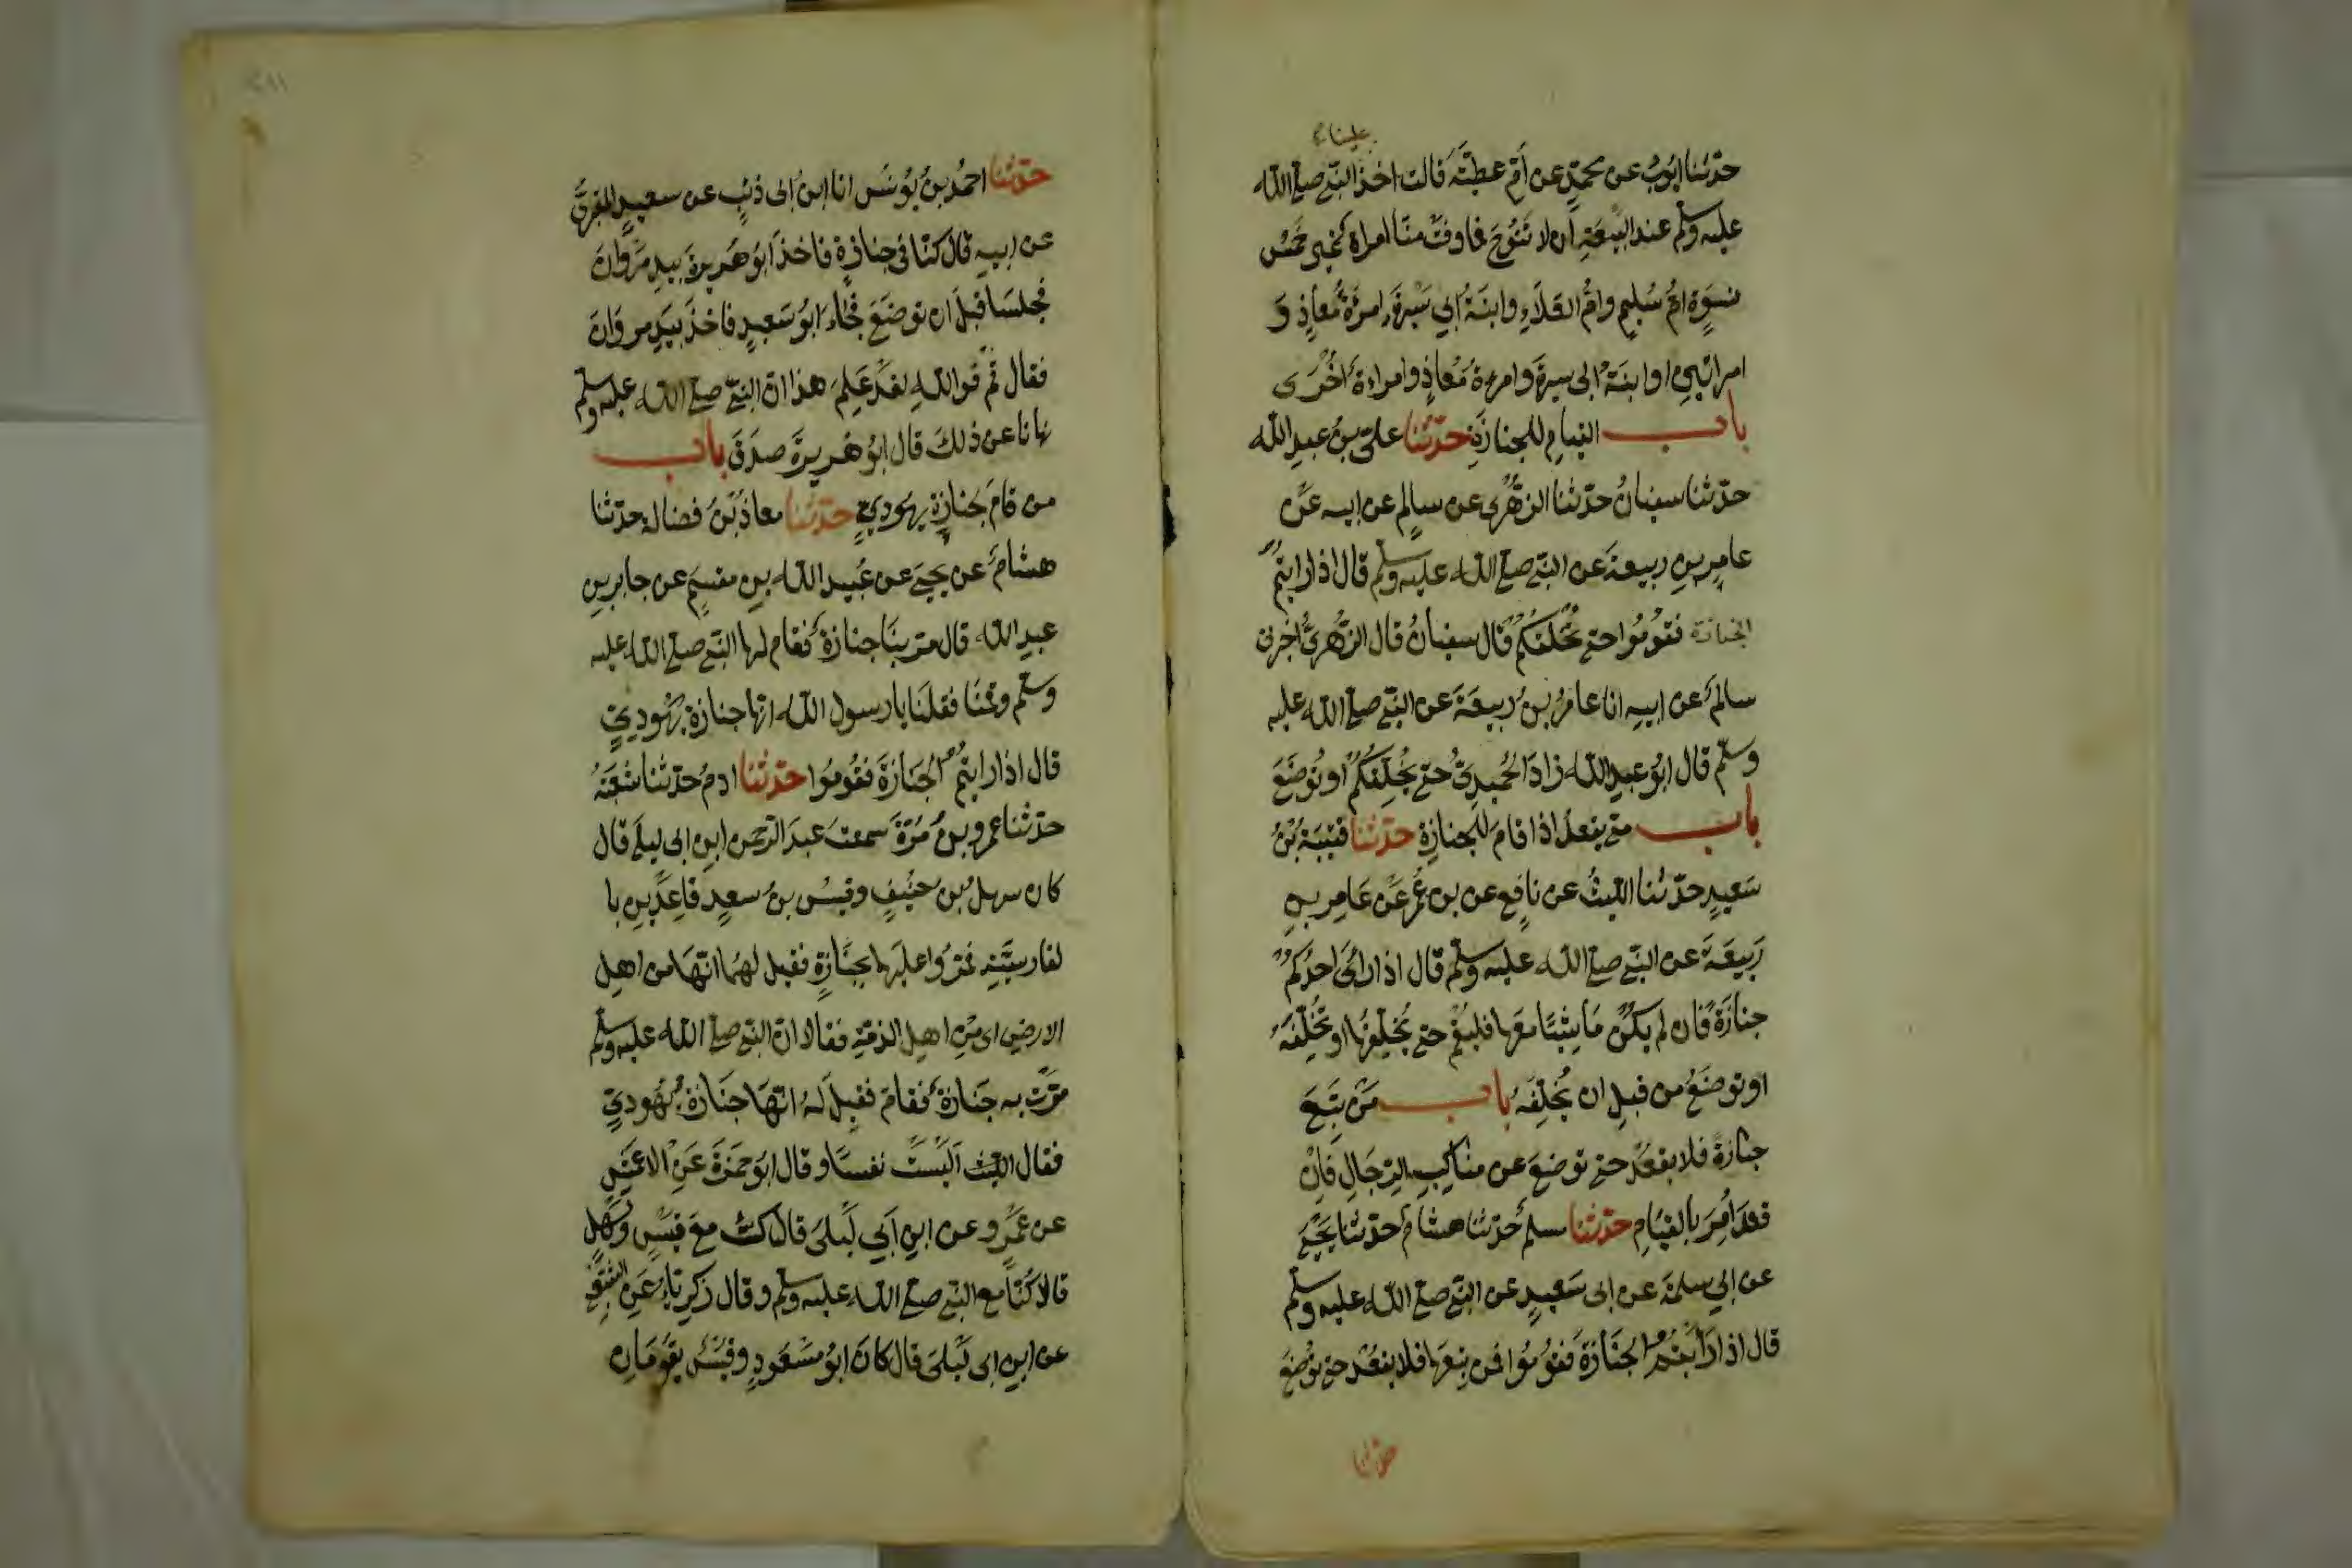 علينا
حدّثنا ايّوبُ عن محمّدٍ عن اُمّ عطيّة قالت اخذ النّبي صلى الله
عليه وسلم عند البيعة ان لا ننوح فما وفت منّا امراة غير خمس
نسوة امّ سُليمٍ وامّ العلاء وابنة ابي سبرة امرة مُعاذٍ و
امراتين او ابنة ابى سبرة وامرءة مُعاذٍ وامراءة اُخرى
باب القيام للجنازة حدّثنا علىّ بن عبد الله
حدّثنا سفيانُ حدّثنا الزهّرى عن سالمٍ عن ابيه عن
عامر بن ربيعة عن النبّي صلى الله عليه وسلم قال اذا رايتم
الجنازة فقوموا حتى تخلفكم قال سفيانُ قال الزّهرىّ اخبرنى
سالمٌ عن ابيه انا عامرُ بن ربيعة عن النبّي صلى الله عليه
وسلّم قال ابوُ عبد الله زاد الحُميدىّ حتى تُخلّفكم او توُضعَ
باب متى يقعد اذا قام للجنازة حدّثنا قتيبة بنُ
سَعيدٍ حدّثنا الليثُ عن نافع عن بن عُمر عن عَامر بن
رَبيعَة عن النّبي صلى الله عليه وسلم قال اذا رائى احدُكم
جنازةً فان لم يكن مَاشيًا معها فليقم حتى يُخلّفها او تُخلّفهُ
او توضَعُ من قبل ان تُخلّفَهُ باب مَن تبعَ
جنازة فلا يقعُد حتى توضع عن مناكب الرّجَال فان
قعَد اُمِرَ بالقيَام حدّثنا مسلمٌ حدّثنا هشامٌ حدّثنا يحيى
عن ابي سلمة عن ابى سَعيدٍ عن النّبي صلى الله عليه وسلم
قال اذا رَايتُم الجنازة فقوُموُا فمن تبعَها فلا يقعُد حتى توُضعَ
حدّثنا
حدّثنا احمدُ بنُ يُونسَ انا ابنُ ابى ذئبٍ عن سعيدٍ المقبرىّ
عن ابيه قال كنّا فى جنازةٍ فاخذ ابوُ هُريرة بيد مرَوانَ
فجلسَا قبل ان توضَعَ فجاء ابوُ سَعيدٍ فاخذ بيَد مروانَ
فقال قُم فوالله لقد عَلِمَ هذا انّ النبّي صلى الله عليه وسلم
نهانا عن ذلكَ قال ابوُ هُريرة صدَقَ باب
من قامَ لجنازة يهُودىٍّ حدّثنا معاذُ بنُ فضالة حدّثنا
هشامٌ عن يحيى عن عُبيد الله بن مقسَمٍ عن جابر بن
عبدِ الله قال مرّ بنَا جنازةٌ فقام لها النّبي صلى الله عليه
وسلّم وقمنَا فقلنَا يا رسول الله انّها جنازة يهُودىٍّ
قال اذا رايتُم الجَنازةَ فقوُموُا حدّثنا ادمُ حدّثنا شعبَةُ
حدّثنا عمرو بنُ مُرّةَ سمعت عبدَ الرّحمن ابن ابى ليلَى قال
كان سهل بُن حنيفٍ وقيسُ بنُ سعيدٍ قاعدين با
لقادسيّة فمَرّوا عليهما بجنَازةٍ فقيل لهُما انّها من اهل
الارض اى مِن اهل الذمّة فقالا انّ النّبي صلى الله عليه وسلم
مرّت به جنَازةٌ فقامَ فقيل لهُ انّهَا جنَازةُ يهُودىٍّ
فقال اليَسَت نفسًا وقال ابوُ حمَزةَ عَنِ الاعمش
عن عَمرو عن ابن اَبي لَيلىَ قال كنتُ معَ قيسٍ وسَهلٍ
قالا كُنّا مع النّبي صلى الله عليه وسلم وقال زكريّاءُ عَنِ الشّعبي
عن ابن ابى لَيلىَ قال كانَ ابوُ مسَعوُدٍ وقيسُ يقوُمَانِ